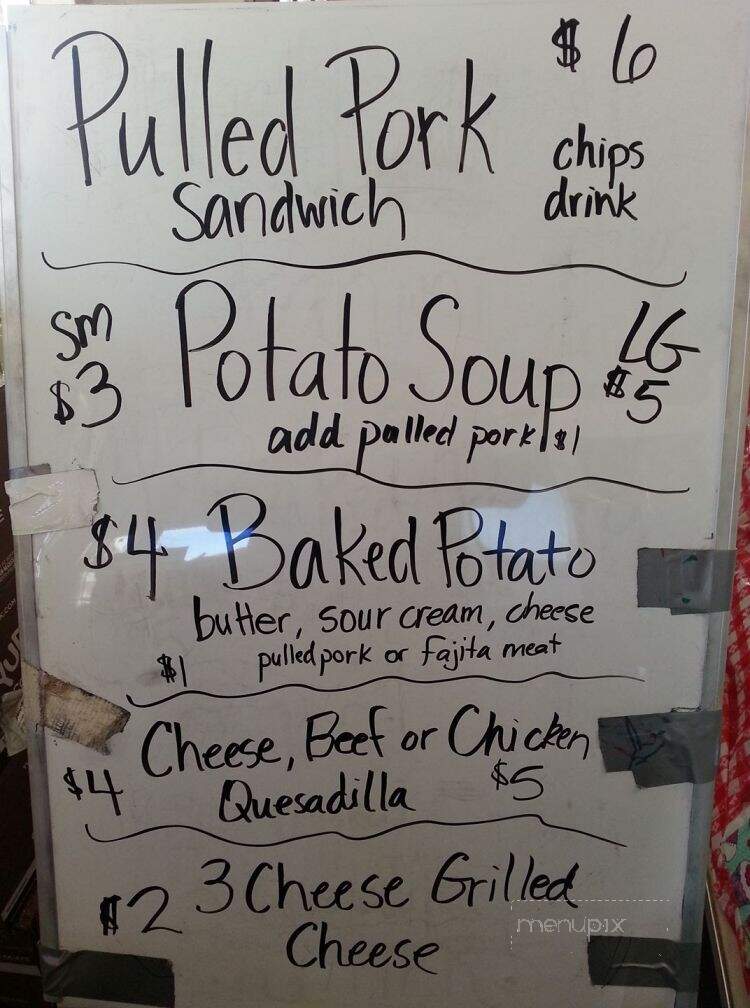 Pulled Pork $6
Sandwich
chips
drink
SM Potato Soup LG
$3 $5
add pulled pork $1
$4 Baked Potato
butter, sour cream, cheese
$1 pulled pork or fajita meat
Cheese, Beef or Chicken
$4 Quesadilla $5
$2 3 Cheese Grilled
Cheese
menupix